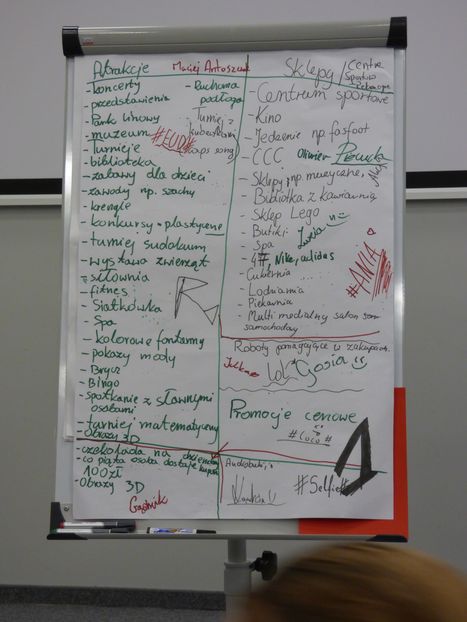 Atrakcje
- koncerty
- przedstawienia
- Park linowy
- muzeum
- Turnieje
- biblioteka
- zabawy dla dzieci
- zawody np. szachy
- kręgle
- konkursy - plastyczne
- turniej sudokum
- wystawa zwierząt
- siłownia
- fitnes
- Siatkówka
- Spa
- kolorowe fontanny
- pokazy mody
- Brydż
- Bingo
- spotkanie z sławnymi osobami
- turniej matematyczny
- Obrazy 3D
- czekolada na
- co piąta osoba dostaje kupon
100zł
- Obrazy 3D
Maciej
- Ruchoma
podłoga
- Turniej z
song
Sklepy / Centra
Sportowo
- Centrum sportowe
- Kino
- Jedzenie np fosfoot
- CCC
Oliwier
- Sklepy, np. muzyczne,
- Bibliotka z kawiarnią
- Sklep Lego
- Butiki
- Spa
- 4F, Nike, adidas
- Cukiernia
- Lodziarnia
- Piekarnia
- Multi medialny salon
samochody
#ANIA
Roboty pomagające w zakupach.
Gosia
Promocje cenowe
#COCO#
1
#Selfie#